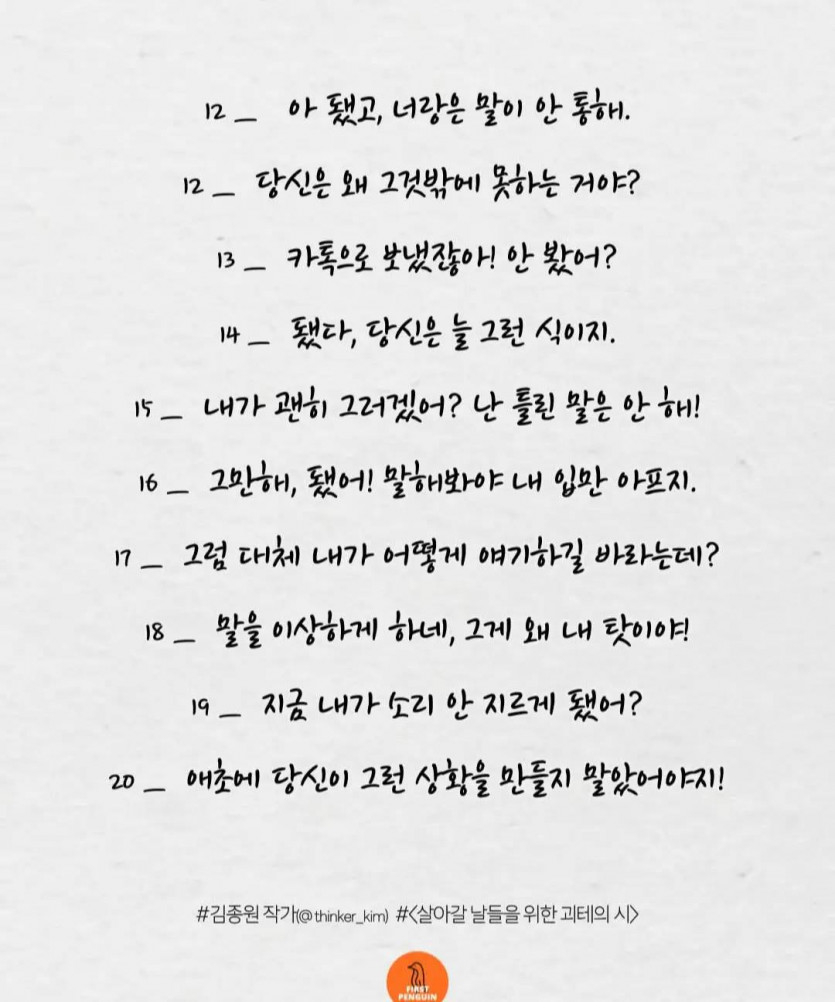 12 _ 아 됐고, 너랑은 말이 안 통해.
12 _ 당신은 왜 그것밖에 못하는 거야?
13 _ 카톡으로 보냈잖아! 안 봤어?
14 _ 됐다, 당신은 늘 그런 식이지.
15 _ 내가 괜히 그러겠어? 난 틀린 말은 안 해!
16 _ 그만해, 됐어! 말해봐야 내 입만 아프지.
17 _ 그럼 대체 내가 어떻게 얘기하길 바라는데?
18 _ 말을 이상하게 하네, 그게 왜 내 탓이야!
19 _ 지금 내가 소리 안 지르게 됐어?
20 _ 애초에 당신이 그런 상황을 만들지 말았어야지!
#김종원 작가(@thinker_kim) #<살아갈 날들을 위한 괴테의 시>
FIRST
PENGUIN